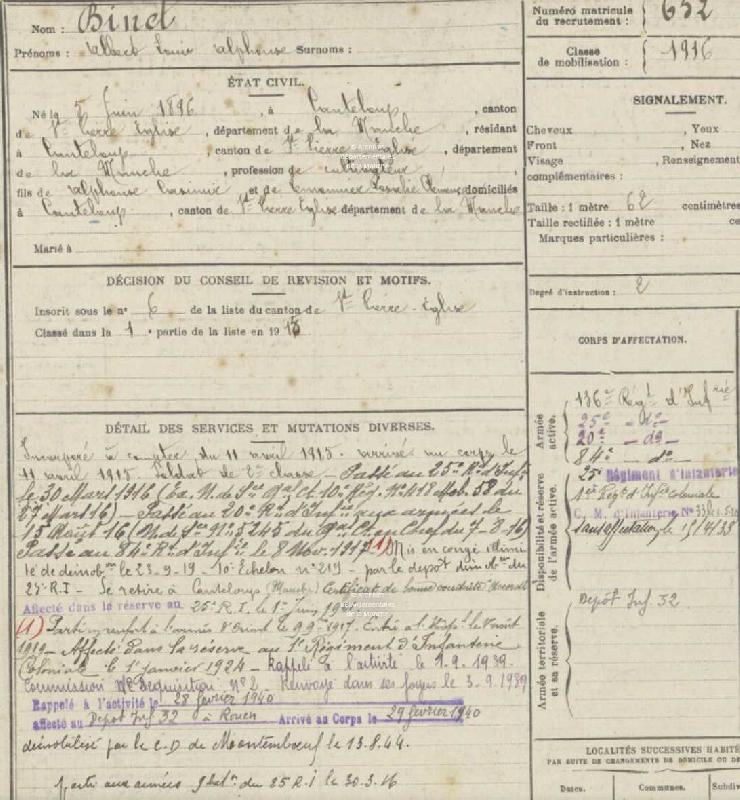 Nom : Binet
Prénoms : Albert Louis Alphonse Surnoms :
Numéro matricule
du recrutement : 652
Classe
de mobilisation : 1916
ÉTAT CIVIL.
Né le 5 Juin 1896, à Canteloup, canton
de St Pierre Eglise, département de la Manche, résidant
à Canteloup, canton de St Pierre Eglise, département
de la Manche, profession de cultivateur,
fils de Alphonse Casimir et de domiciliés
à Canteloup, canton de St Pierre Eglise département de la Manche
Marié à
SIGNALEMENT.
Cheveux , Yeux
Front , Nez
Visage , Renseignement
complémentaires :
Taille : 1 mètre 62 centimètres
Taille rectifiée : 1 mètre ce
Marques particulières :
Degré d'instruction : 2
DÉCISION DU CONSEIL DE REVISION ET MOTIFS.
Inscrit sous le n° 6 de la liste du canton de St Pierre-Eglise
Classé dans la 1e partie de la liste en 1915
DÉTAIL DES SERVICES ET MUTATIONS DIVERSES.
Incorporé à compter du 11 avril 1915. arrivé au corps le
11 avril 1915. Soldat de 2e classe - Passé au 25e R. d'Inf.
le 30 Mars 1916 (Ex. N. de Sce Gal Ct. 10e Rég. N° 418 Mob. 58 du
27 Mars 16) - Passé au 20e R. d'Inf. aux armées le
15 Août 16 (N. de Sce N° 5245 du Gal Ct en Chef du 7-8-16)
Passé au 84e R. d'Inf. le 8 Nov. 1917 (1) Mis en congé illimi
té de démob. le 23-9-19 - 10e Echelon n° 219 - par le dépôt dém. du
25e R.I - Se retire à Canteloup (Manche) Certificat de bonne conduite Accordé
Affecté dans la réserve au 25e R.I. le 1er
(1) Parti en renfort à l'armée d'Orient le 1917. Entré à
1919 - Affecté dans la réserve au 1er Régiment d'Infanterie
Coloniale le 1er janvier 1924 - Rappelé à l'activité le 1-9-1939.
Commission de Réquisition N° 2 Renvoyé dans ses foyers le 3-9-1939
Rappelé à l'activité le 28 février 1940
affecté au Dépôt Inf 32 à Rouen Arrivé au Corps le 29 février 1940
démobilisé par le C.D de Montembœuf le 13.8.40.
Parti aux armées du 25 R.I le 30.3.16
CORPS D'AFFECTATION.
Armée
active.
136e Régt d'Infrie
25e - do -
20e - do -
84e do -
Disponibilité et réserve
de l'armée active.
25e Régiment d'Infanterie
1er Régt d'Infie Coloniale
C. M. d'Infanterie N°
sans affectation le
Armée territoriale
et sa réserve.
Dépôt Inf. 32
LOCALITÉS SUCCESSIVES HABITÉ
PAR SUITE DE CHANGEMENTS DE DOMICILE OU DE
Dates. Communes. Subdiv